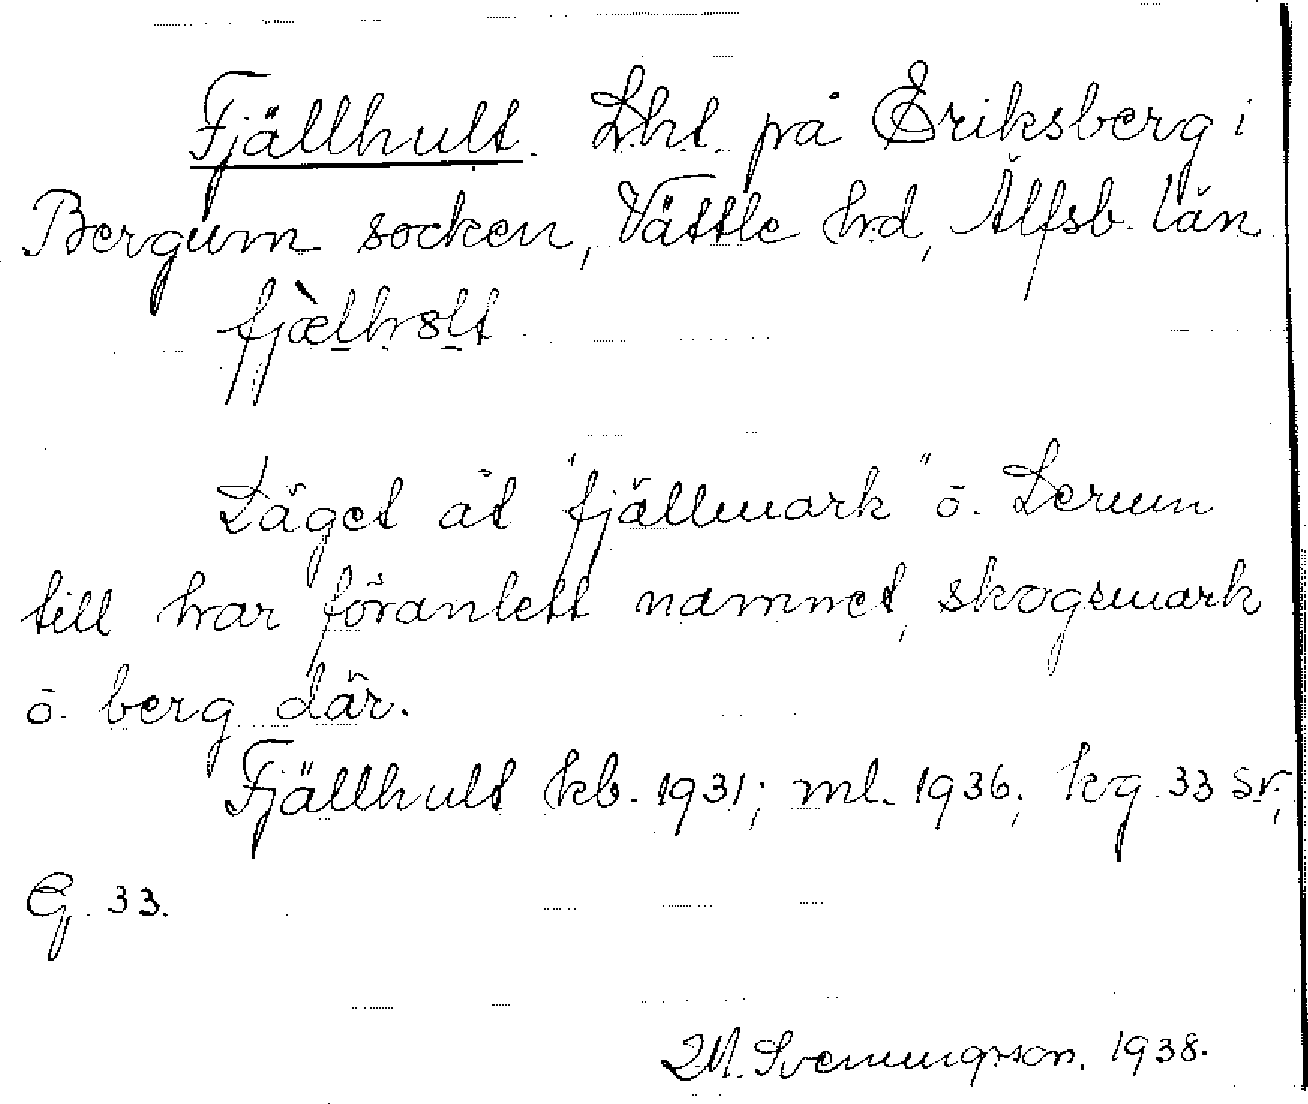 Fjällhult. Lht. på Eriksberg i
Bergum socken, Vättle hd, Älfsb. län
fjælhslt
Läget åt "fjällmark" o. Lerum
till har föranlett namnet, skogsmark
o. berg där.
Fjällhult kb. 1931; ml. 1936; kg 33 sr,
G. 33.
M. Svenungsson. 1938.